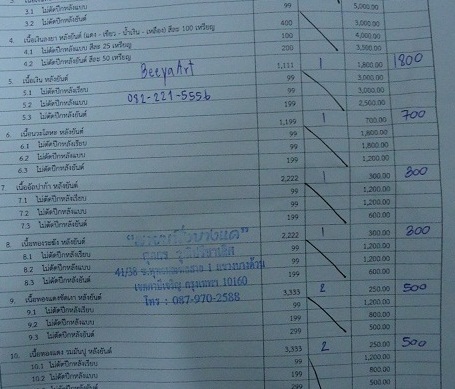 3.1 ไม่ตัดปีกหลังเรียบ 99 5,000.00
3.2 ไม่ตัดปีกหลังแบบ
4. เนื้อเงินลงยา หลังยันต์ (แดง - เขียว - น้ำเงิน - เหลือง) สีละ 100 เหรียญ 400 3,000.00
4.1 ไม่ตัดปีกแบบ สีละ 25 เหรียญ 100 4,000.00
4.2 ไม่ตัดปีกแบบ สีละ 50 เหรียญ 200 3,500.00
5. เนื้อเงิน หลังยันต์ BeeyaArt 1,111 1 1,800.00 1800
5.1 ไม่ตัดปีกหลังเรียบ 99 3,000.00
5.2 ไม่ตัดปีกหลังแบบ 082-221-5556 99 3,000.00
5.3 ไม่ตัดปีกหลังยันต์ 199 2,500.00
6. เนื้อนวะโลหะ หลังยันต์ 1,199 1 700.00 700
6.1 ไม่ตัดปีกหลังเรียบ 99 1,800.00
6.2 ไม่ตัดปีกหลังแบบ 99 1,800.00
6.3 ไม่ตัดปีกหลังยันต์ 199 1,200.00
7. เนื้ออัลปาก้า หลังยันต์ 2,222 1 300.00 300
7.1 ไม่ตัดปีกหลังเรียบ 99 1,200.00
7.2 ไม่ตัดปีกหลังแบบ 99 1,200.00
7.3 ไม่ตัดปีกหลังยันต์ 199 600.00
8. เนื้อทองระฆัง หลังยันต์ 2,222 1 300.00 300
8.1 ไม่ตัดปีกหลังเรียบ 99 1,200.00
8.2 ไม่ตัดปีกหลังแบบ 99 1,200.00
8.3 ไม่ตัดปีกหลังยันต์ 199 600.00
41/38 แขวงบางด้วน
เขตภาษีเจริญ กรุงเทพฯ 10160
โทร : 087-970-2588
9. เนื้อทองแดงขัดเงา หลังยันต์ 3,333 2 250.00 500
9.1 ไม่ตัดปีกหลังเรียบ 99 1,200.00
9.2 ไม่ตัดปีกหลังแบบ 199 800.00
9.3 ไม่ตัดปีกหลังยันต์ 299 500.00
10. เนื้อทองแดง รมมันปู หลังยันต์ 3,333 2 250.00 500
10.1 ไม่ตัดปีกหลังเรียบ 99 1,200.00
10.2 ไม่ตัดปีกหลังแบบ 199 800.00
299 500.00